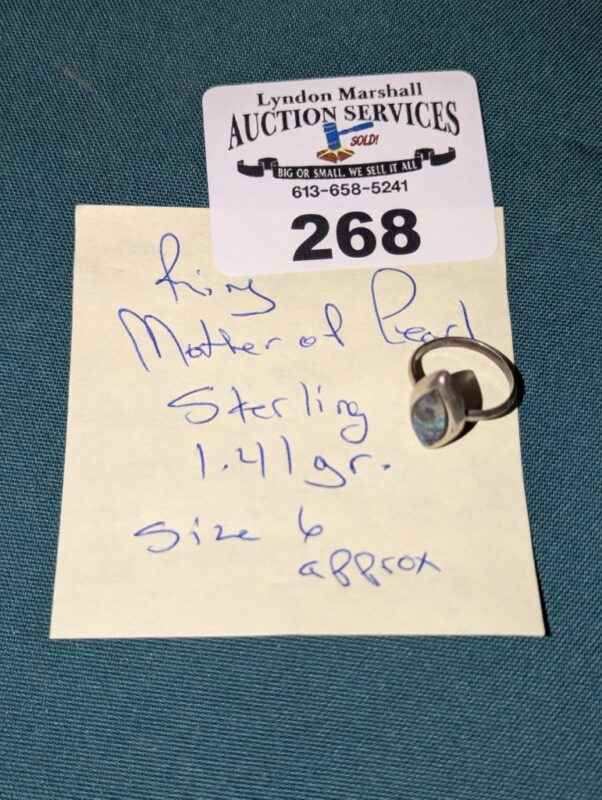 Lyndon Marshall
AUCTION SERVICES
SOLD!
BIG OR SMALL, WE SELL IT ALL
613-658-5241
268
Ring
Mother of Pearl
Sterling
1.41gr.
Size 6
approx